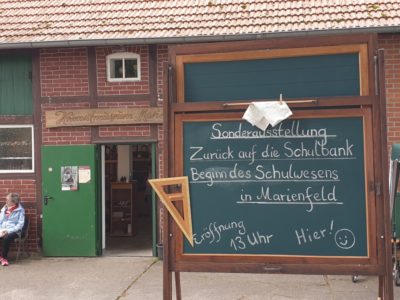 Sonderausstellung
Zurück auf die Schulbank
Beginn des Schulwesens
in Marienfeld
Eröffnung
13 Uhr Hier!